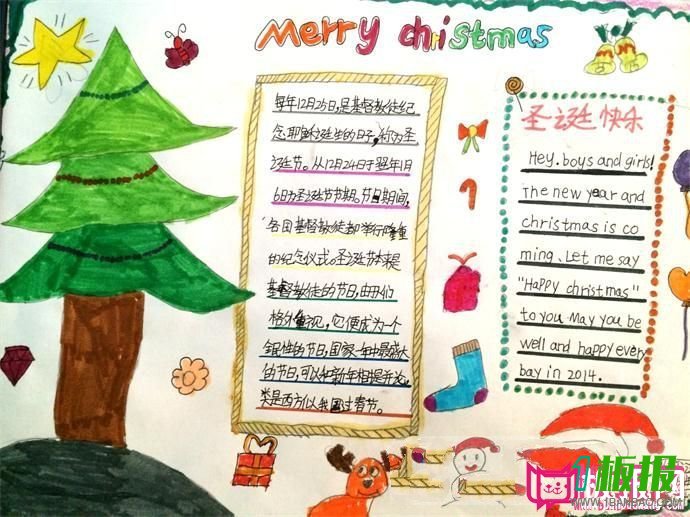 Merry christmas
每年12月25日,是基督教徒纪
念耶稣诞生的日子,称为圣
诞节。从12月24日于翌年1月
6日为圣诞节节期。节日期间,
各国基督教徒都举行隆重
的纪念仪式。圣诞节本来是
基督教徒的节日,由于人们
格外重视,它便成为一个
全民性的节日,国家一年中最盛大
的节日,可以和新年相提并论,
类是西方以我国过春节。
圣诞快乐
Hey. boys and girls!
The new year and
christmas is co
ming. Let me say
"Happy christmas"
to you May you be
well and happy every
bay in 2014.
板报
WWW.1BANBAO.COM